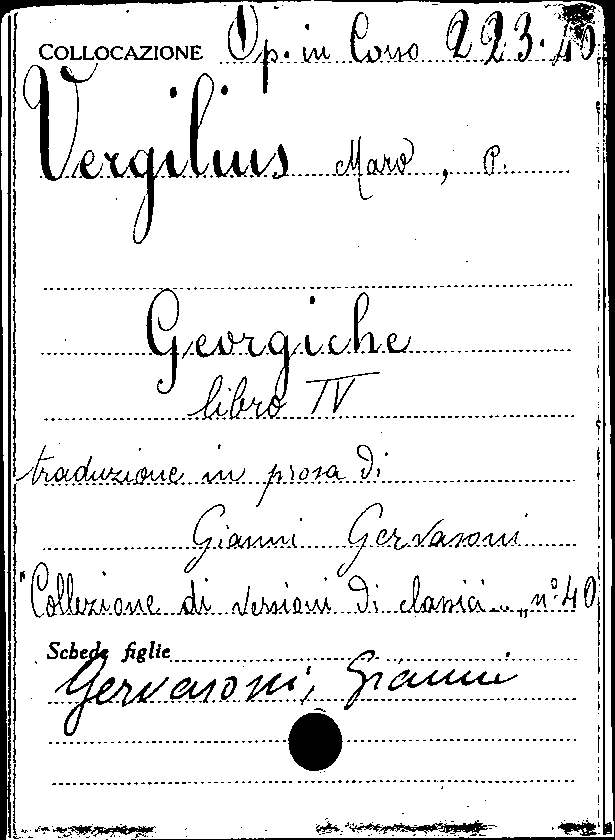 COLLOCAZIONE Op. in Corso 223.40
Vergilius Maro, P.
Georgiche
libro IV
traduzione in prosa di
Gianni Gervasoni
"Collezione di versioni di classici..„ n° 40
Schede figlie
Gervasoni, Gianni